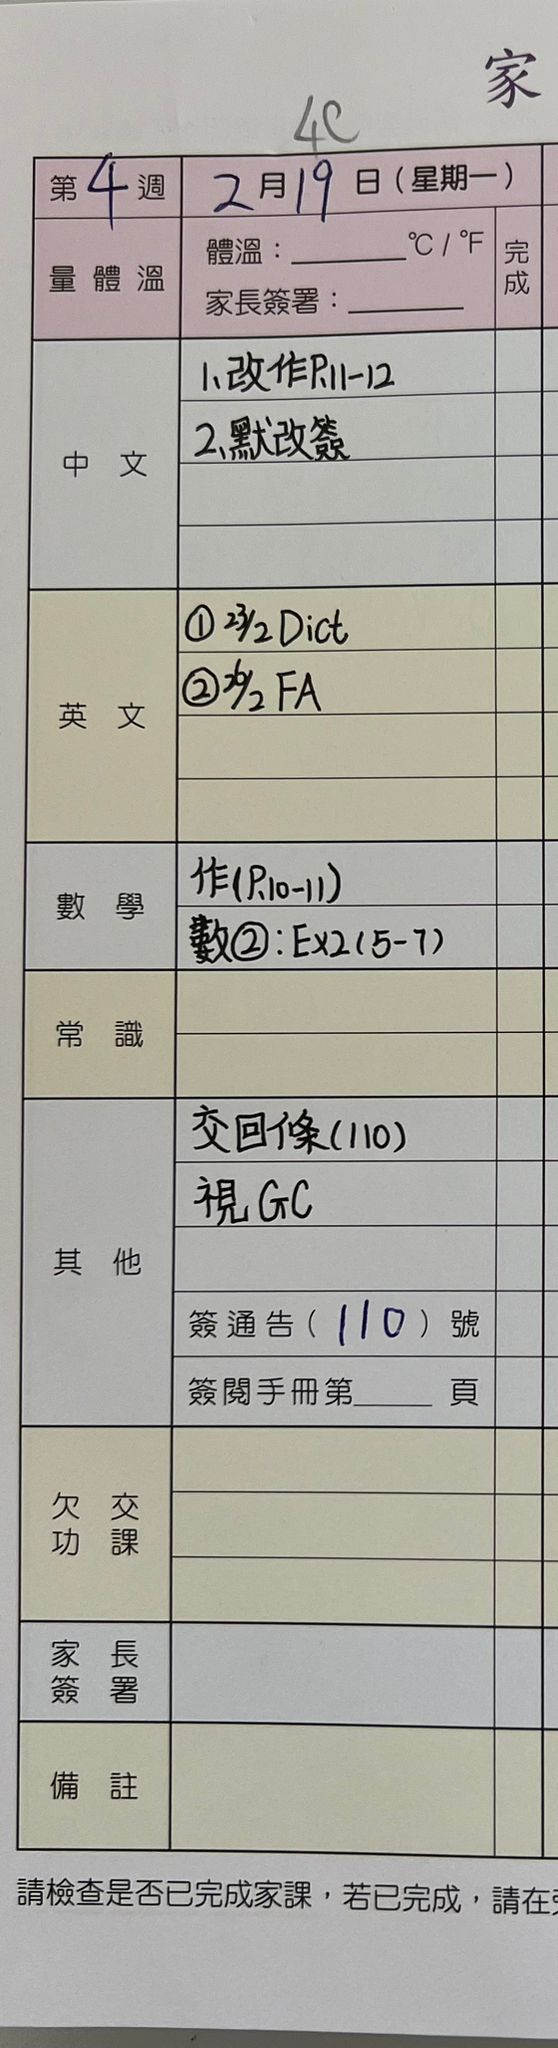 家
4C
第4週 2月19日(星期一)
量體溫 體溫：______℃/℉ 完成
家長簽署：______
中文
1、改作P.11-12
2、默改簽
英文
① 23/2 Dict
② 26/2 FA
數學
作(P.10-11)
數②：Ex2(5-7)
常識
其他
交回條(110)
視GC
簽通告(110)號
簽閱手冊第____頁
欠交功課
家長簽署
備註
請檢查是否已完成家課，若已完成，請在